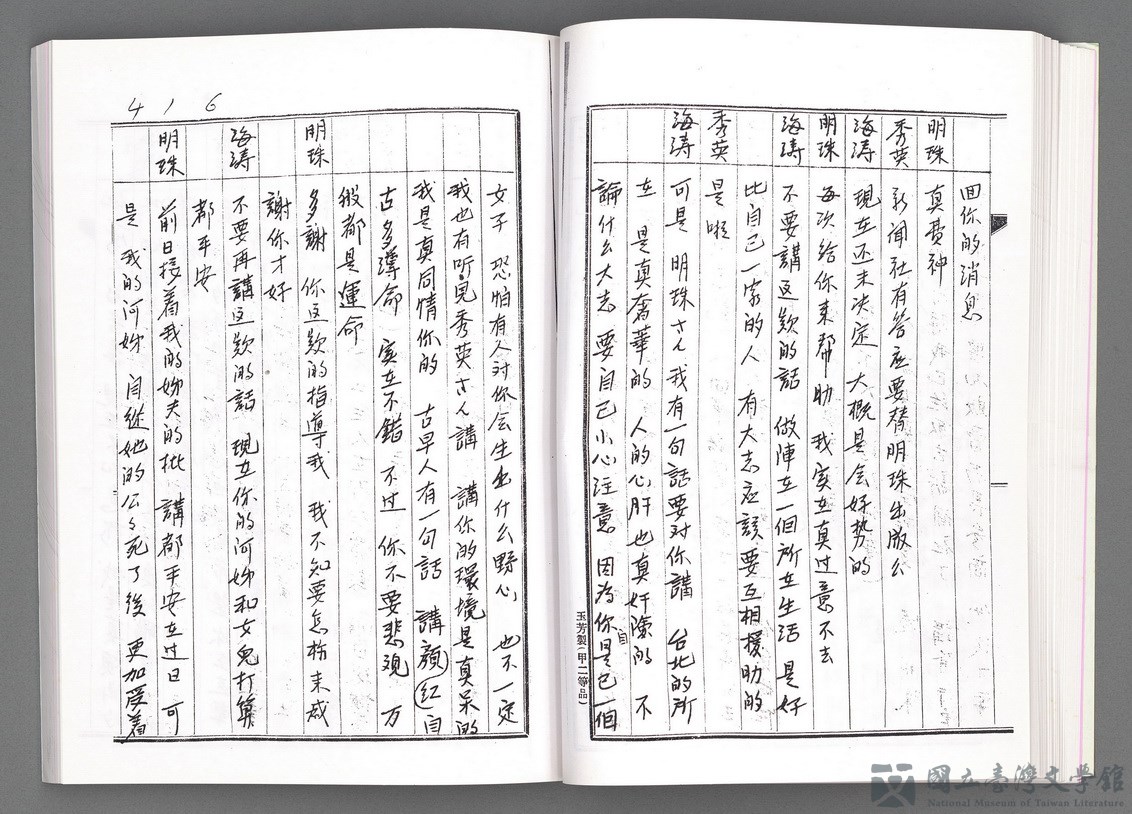 回你的消息
明珠 真費神
秀英 新闻社有答应要替明珠出版么
海涛 現在还未決定 大概是会好势的
明珠 每次给你来帮助 我实在真过意不去
海涛 不要講这欵的話 做陣在一個所在生活 是好
比自己一家的人 有大志应該要互相援助的
秀英 是啦
海涛 可是 明珠さん我有一句話要对你講 台北的所
在 是真奢華的 人的心肝也真奸險的 不
論什么大志 要自己小心注意 因為你自是己一個
玉芳製(甲二等品)
416
女子 恐怕有人对你会生出什么野心 也不一定
我也有听見秀英さん講 講你的環境是真呆的
我是真同情你的 古早人有一句話 講顏(紅)自
古多薄命 实在不錯 不过 你不要悲观 万
般都是運命
明珠 多謝 你这欵的指導我 我不知要怎栋来感
謝你才好
海涛 不要再講这欵的話 現在你的阿姊和女兒打算
都平安
明珠 前日接着我的姊夫的批 講都平安在过日 可
是 我的阿姊 自從她的公々死了後 更加受着
國立臺灣文學館
National Museum of Taiwan Literature